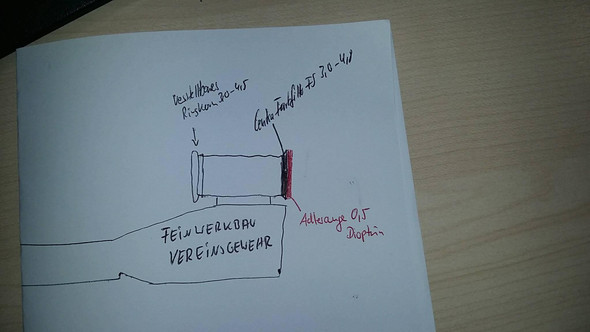 verstellbares
Ringkorn 3,0-4,5
Centra Farbfilter FS 3,0-4,8
Adlerauge 0,5
Dioptrin
FEINWERKBAU
VEREINSGEWEHR